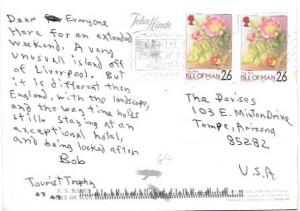 Dear Everyone
Here for an extended
weekend. A very
unusual island off
of Liverpool. But
it is different then
England, with the landscape,
and the way time holds
still. Staying at an
exceptional hotel,
and being looked after
Bob
Tourist Trophy
John Hinde
ISLE OF MAN 26
ISLE OF MAN 26
The Davises
103 E. Minton Drive
Tempe, Arizona
85282
U.S.A.